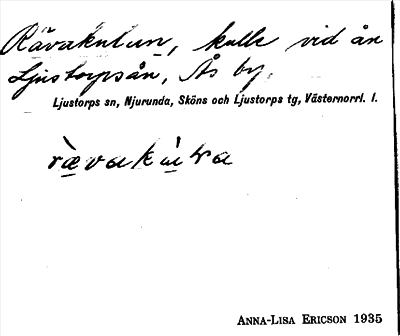 Rävakulun, kulle vid ån
Ljustorpsån, Ås by.
Ljustorps sn, Njurunda, Sköns och Ljustorps tg, Västernorrl. l.
ANNA-LISA ERICSON 1935